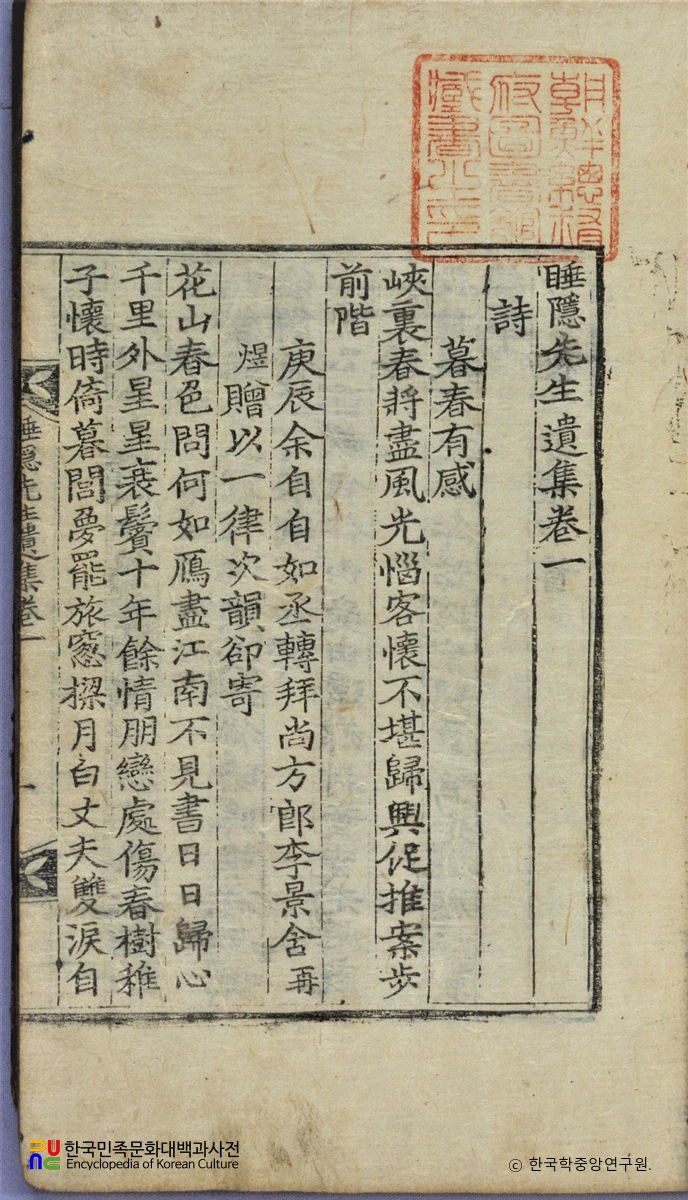 朝鮮總督
府圖書館
藏書之印
睡隱先生遺集卷一
詩
暮春有感
峽裏春將盡風光惱客懷不堪歸興促推案步
前階
庚辰余自自如丞轉拜尚方郎李景舍再
煜贈以一律次韻卻寄
花山春色問何如鴈盡江南不見書日日歸心
千里外星星衰鬢十年餘情朋戀處傷春樹稚
子懷時倚暮閭夢罷旅窓樑月白丈夫雙淚自
睡隱先生遺集卷一
一
한국민족문화대백과사전
Encyclopedia of Korean Culture
© 한국학중앙연구원.